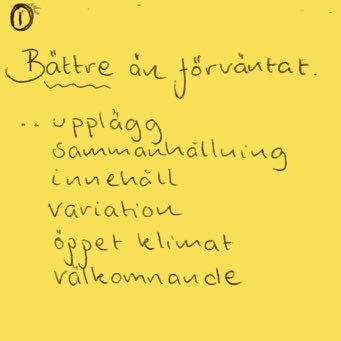 1
Bättre än förväntat.
.. upplägg
sammanhållning
innehåll
variation
öppet klimat
välkomnande